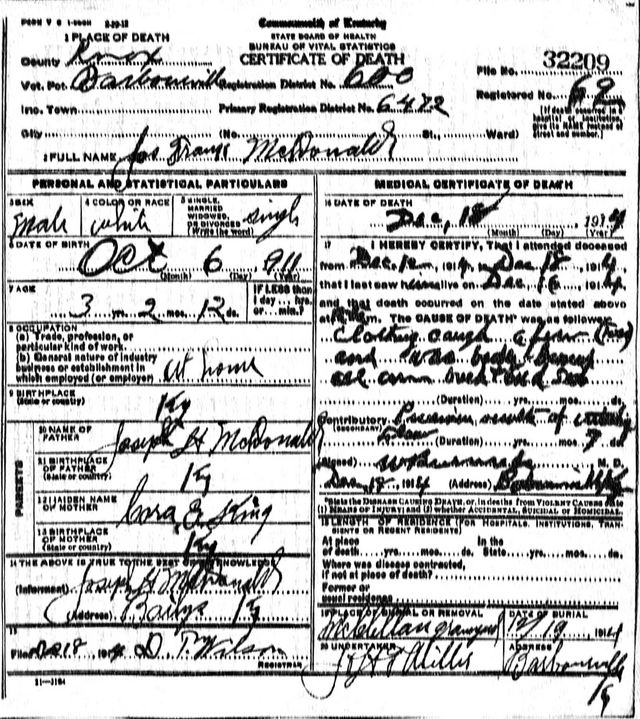 FORM V S 1-500M 8-20-13
Commonwealth of Kentucky
STATE BOARD OF HEALTH
BUREAU OF VITAL STATISTICS
CERTIFICATE OF DEATH
1 PLACE OF DEATH
County Knox
Vot. Pct. Barbourville Registration District No. 600
File No. 32209
Inc. Town Primary Registration District No. 6472
Registered No. 62
City (No. St., Ward)
[If death occurred in a hospital or institution, give its NAME instead of street and number.]
2 FULL NAME Jos Frank McDonald
PERSONAL AND STATISTICAL PARTICULARS
3 SEX Male
4 COLOR OR RACE White
5 SINGLE, MARRIED WIDOWED, OR DIVORCED (Write the word) Single
6 DATE OF BIRTH
Oct 6 1911
(Month) (Day) (Year)
7 AGE
3 yrs. 2 mos. 12 ds.
IF LESS than 1 day... hrs. or... min.?
8 OCCUPATION
(a) Trade, profession, or particular kind of work
(b) General nature of industry
business or establishment in
which employed (or employer) at home
9 BIRTHPLACE
(State or country) Ky
PARENTS
10 NAME OF FATHER Joseph H McDonald
11 BIRTHPLACE OF FATHER
(State or country) Ky
12 MAIDEN NAME OF MOTHER Cora E King
13 BIRTHPLACE OF MOTHER
(State or country) Ky
14 THE ABOVE IS TRUE TO THE BEST OF MY KNOWLEDGE
(Informant) Joseph H McDonald
(Address) Ky
15
Filed Dec 18 1914 D. T. Wilson
REGISTRAR
11-1184
MEDICAL CERTIFICATE OF DEATH
16 DATE OF DEATH
Dec, 18 1914
(Month) (Day) (Year)
17 I HEREBY CERTIFY, That I attended deceased
from Dec 12 1914, to Dec 18 1914,
that I last saw him alive on Dec 16 1914
and that death occurred on the date stated above
at M. The CAUSE OF DEATH was as follows:
Clothing caught a fire
and was badly
all
(Duration) yrs. mos. ds.
Contributory
(SECONDARY)
(Duration) yrs. mos. ds.
(Signed) M. D.
Dec 18 1914 (Address) Barbourville Ky
State the DISEASE CAUSING DEATH, or, in deaths from VIOLENT CAUSES state
(1) MEANS OF INJURY; and (2) whether ACCIDENTAL, SUICIDAL or HOMICIDAL
18 LENGTH OF RESIDENCE (FOR HOSPITALS, INSTITUTIONS, TRANSIENTS OR RECENT RESIDENTS)
At place In the
of death yrs. mos. ds. State yrs. mos. ds.
Where was disease contracted,
if not at place of death?
Former or
usual residence
19 PLACE OF BURIAL OR REMOVAL DATE OF BURIAL
McClellan Graveyard 12/19 1914
20 UNDERTAKER ADDRESS
Barbourville
Ky